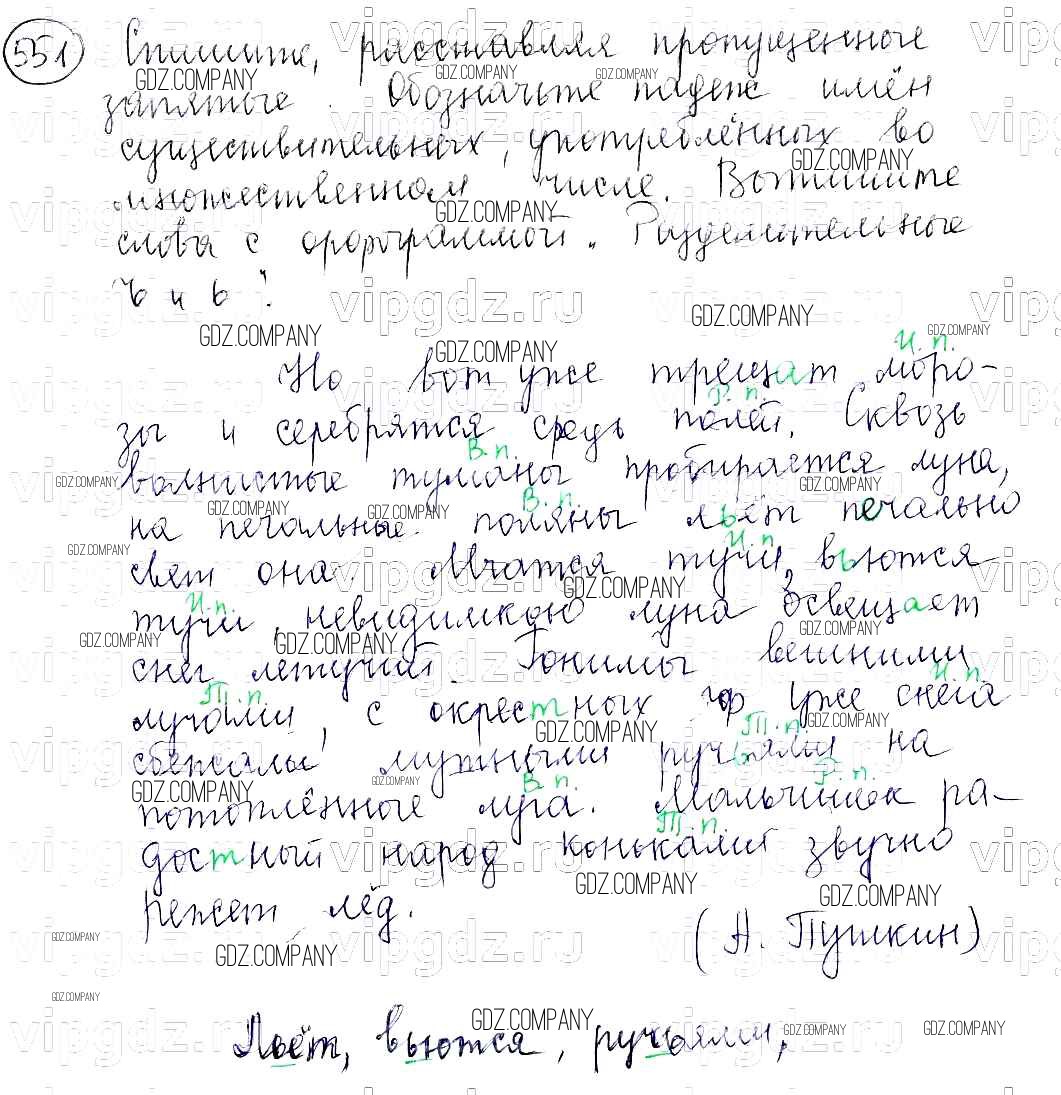 551 Спишите, расставляя пропущенные
запятые. Обозначьте падеж имён
существительных, употреблённых во
множественном числе. Выпишите
слова с орфограммой „Разделительные
ъ и ь".
Но вот уже трещат моро-
зы и серебрятся средь полей. Сквозь
волнистые туманы пробирается луна,
на печальные поляны льёт печально
свет она. Мчатся тучи, вьются
тучи, невидимкою луна освещает
снег летучий. Гонимы вешними
лучами, с окрестных гор уже снега
сбежали мутными ручьями на
потоплённые луга. Мальчишек ра-
достный народ коньками звучно
режет лёд.
(А. Пушкин)
Льёт, вьются, ручьями,